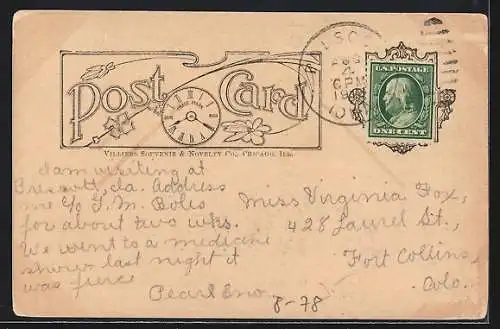 Post Card
TRADE MARK
VILLIERS SOUVENIR & NOVELTY CO., CHICAGO, ILL.
AUG
6 PM
U.S. POSTAGE
ONE CENT
I am visiting at
Prescott, Ia. Address
me c/o J. M. Boles
for about two wks.
We went to a medicine
show last night it
was fierce
Pearl Eno
Miss Virginia Fox,
428 Laurel St.,
Fort Collins,
Colo.
8-78